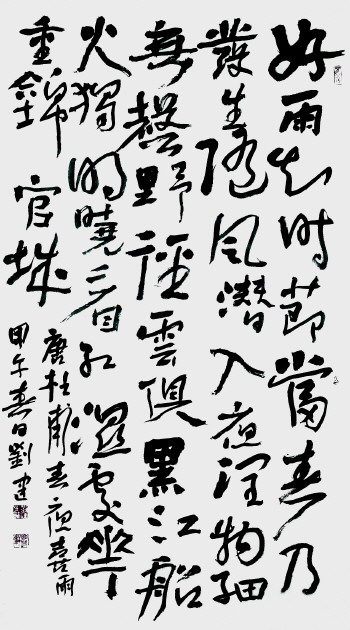 好雨知时節當春乃
發生随风潛入夜润物細
無聲野徑雲俱黑江船
火獨明曉看红濕處花
重錦官城
唐杜甫春夜喜雨
甲午春日劉建